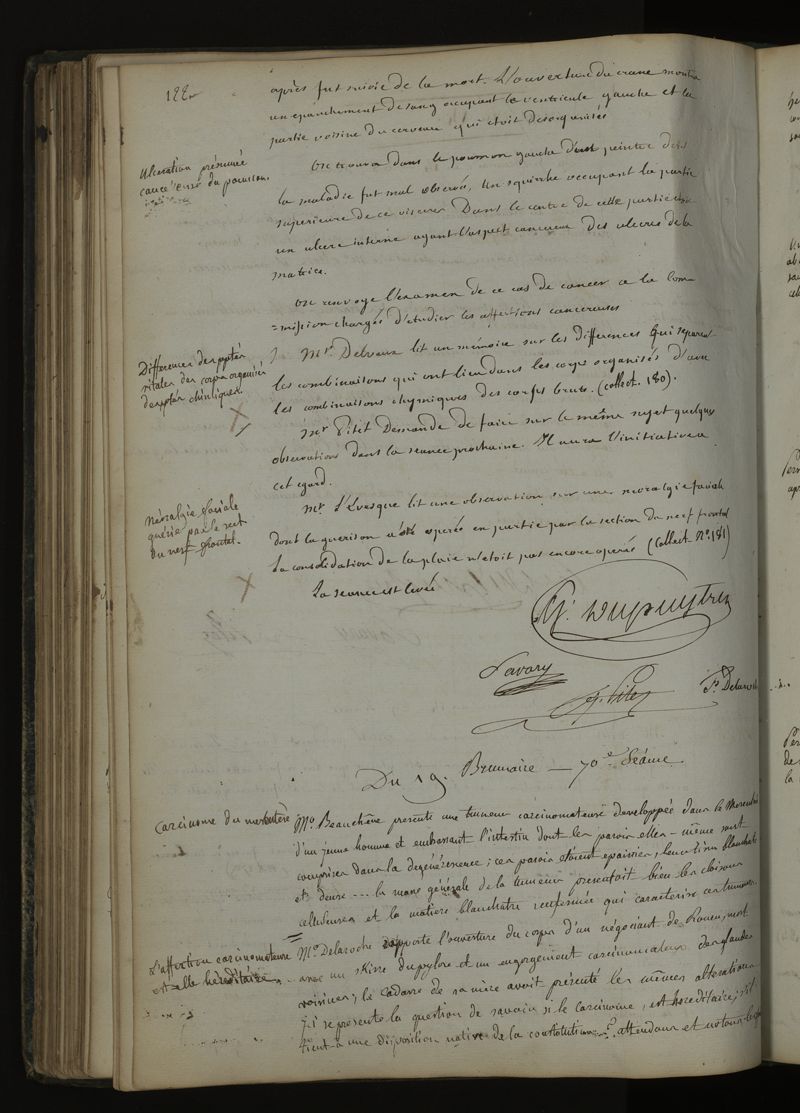 122
après fut suivie de la mort. L'ouverture du crane montra
un epanchement de sang occupant le ventricule gauche et la
partie voisine du cerveau qui etoit desorganisée
Ulceration présumée
cancereuse du poumon.
On trouva dans le poumon gauche d'un peintre dont
la maladie fut mal observée, un squirrhe occupant la partie
superieure de ce viscere Dans le centre de cette partie etoit
un ulcere interne ayant l'aspect cancereux des ulceres de la
matrice.
On renvoye l'examen de ce cas de cancer a la Com
=mission chargée d'etudier les affections cancereuses
Differences des pptés
vitales des corps organisés
des pptés chimiques.
Mr. Delaroche lit un mémoire sur les differences qui separent
les combinaisons qui ont lieu dans les corps organisés d'avec
les combinaisons chymiques des corps bruts. (collect. 180).
Mr Petit Demande de faire sur le même sujet quelques
observations dans la seance prochaine. Il aura l'initiative a
cet egard.
Névralgie faciale
guérie par la sect
du nerf frontal.
Mr. L'Evesque lit une observation sur une nevralgie faciale
dont la guerison a été operée en partie par la section du nerf frontal
la consolidation de la plaie n'etoit pas encore operée (Collect. No. 181)
La seance est levée
G. Dupuytren
Savary
Petit
Delaroche
Du 19. Brumaire — 70e Séance.
Carcinome du mesentère
Mr. Beauchêne presente une tumeur carcinomateuse developpée dans le Mesentère
d'un jeune homme et embrassant l'intestin dont les parois elles-même sont
comprises dans la degénérescence; ces parois étoient epaissies, leur tissu blanchatre
et dense --- la masse générale de la tumeur presentait bien les cloisons
celluleuses et la matiere blanchatre renfermée qui caracterise ces tumeurs.
L'affection carcinomateuse
est elle héréditaire
Mr. Delaroche rapporte l'ouverture du corps d'un négociant de Rouen, mort
avec un skirre du pylore et un engorgement carcinomateux des glandes
voisines; le cadavre de sa mère avoit présenté les mêmes alterations
ici se presente la question de savoir si le carcinome, est héréditaire, s'il
tient à une disposition native de la constitution &c. attendons et notons les